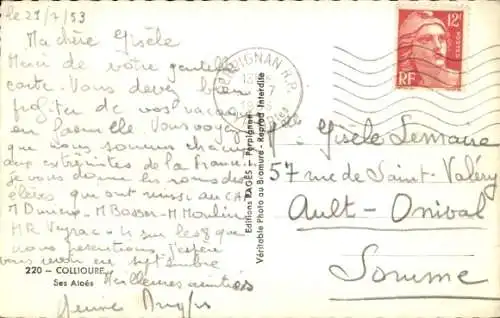 le 29/7/53
Ma chère Gisèle
Merci de votre gentille
carte. Vous devez bien
profiter de vos vacances
en famille Vous voyez
que nous sommes chez
aux extrémités de la France!
je vous donne les noms des
élèves qui ont réussi au CAP
M Bosser - M Moulin
sur les 8 que
nous présentions J'espère
vous revoir en septembre
Meilleures amitiés
220 - COLLIOURE
Ses Aloés
Editions RAGES - Perpignan
Véritable Photo au Bromure - Reprod Interdite
PERPIGNAN R.P.
12F
POSTES
RF
Gisèle Lemaire
57 rue de Saint-Valéry
Ault-Onival
Somme